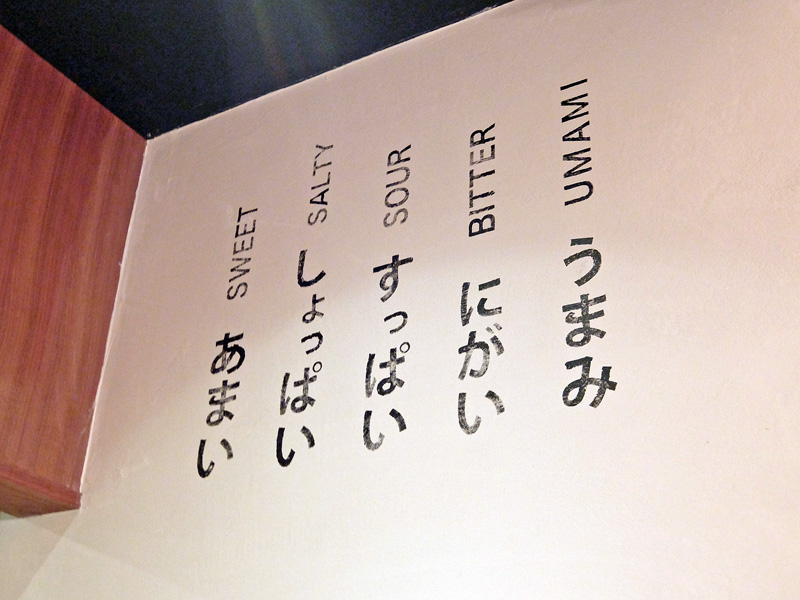 SWEET あまい
SALTY しょっぱい
SOUR すっぱい
BITTER にがい
UMAMI うまみ